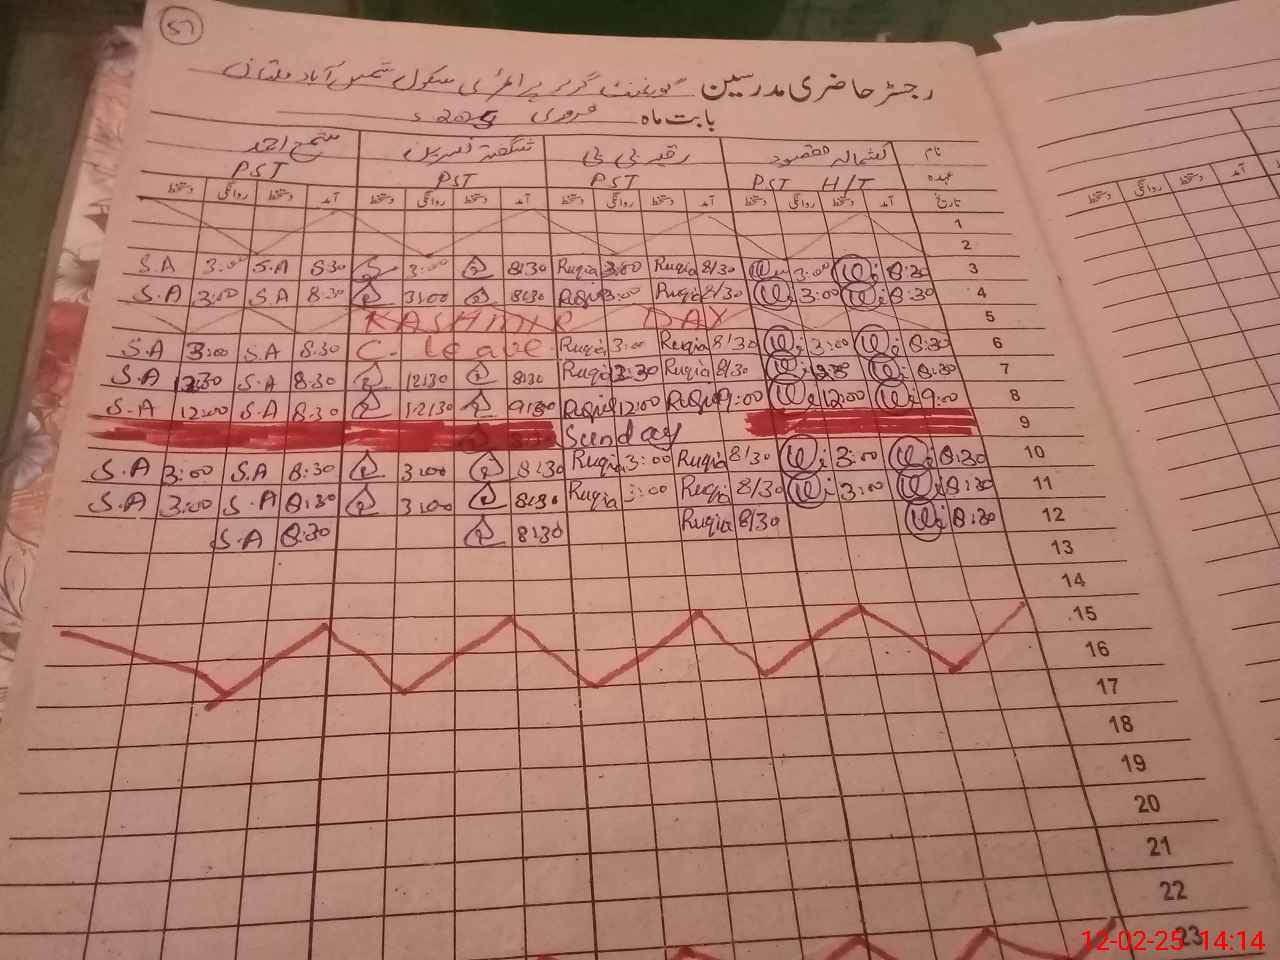 57
رجسٹر حاضری مدرسین گورنمنٹ گرلز پرائمری سکول شمس آباد ملتان
بابت ماہ فروری 2025ء
نام کشمالہ مقصود رقیہ بی بی شگفتہ نسرین شمع احمد
عہدہ PST H/T PST PST PST
تاریخ آمد دستخط روانگی دستخط آمد دستخط روانگی دستخط آمد دستخط روانگی دستخط آمد دستخط روانگی دستخط
1
2
S.A 3:00 S.A 8:30 3:00 8:30 Ruqia 3:00 Ruqia 8/30 3:00 8:30 3
S.A 3:00 S.A 8:30 3:00 8:30 Ruqia 3:00 Ruqia 8/30 3:00 8:30 4
KASHMIR DAY 5
S.A 3:00 S.A 8:30 C. leave Ruqia 3:00 Ruqia 8/30 3:00 8:30 6
S.A 12:30 S.A 8:30 12:30 8:30 Ruqia Ruqia 8/30 8:30 7
S.A 12:00 S.A 8:30 12:30 9:00 Ruqia 12:00 Ruqia 9:00 12:00 9:00 8
Sunday 9
S.A 3:00 S.A 8:30 3:00 8:30 Ruqia 3:00 Ruqia 8/30 3:00 8:30 10
S.A 3:00 S.A 8:30 3:00 8:30 Ruqia 3:00 Ruqia 8/30 3:00 8:30 11
S.A 8:30 8:30 Ruqia 8/30 8:30 12
13
14
15
16
17
18
19
20
21
22
23
12-02-25 14:14
آمد دستخط روانگی دستخط